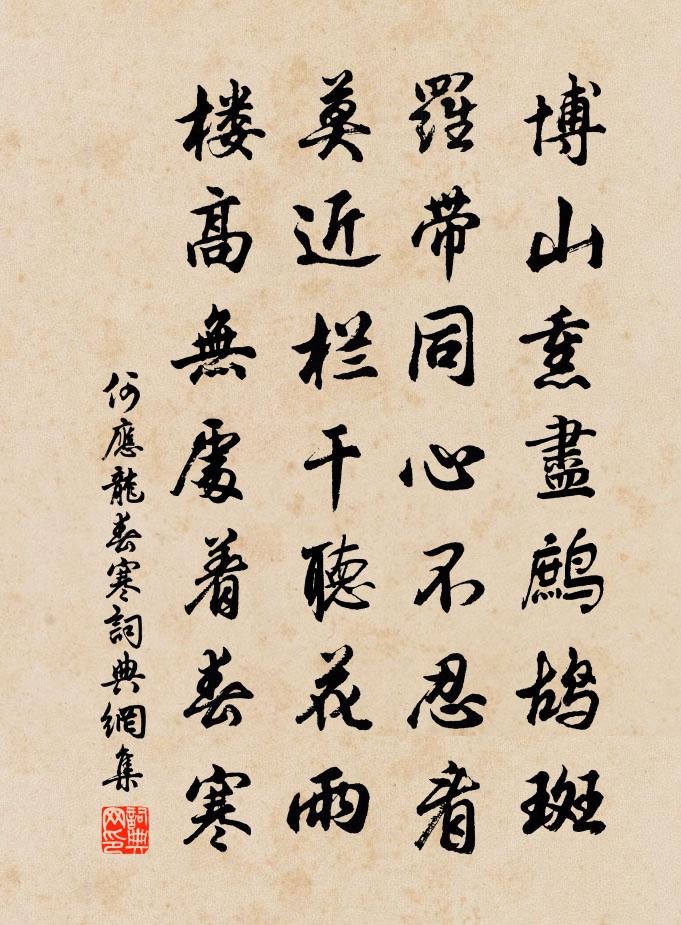 博山熏盡鷓鴣斑
羅带同心不忍看
莫近栏干聽花雨
楼高無處着春寒
何應龍春寒詞典網集
詞典網印